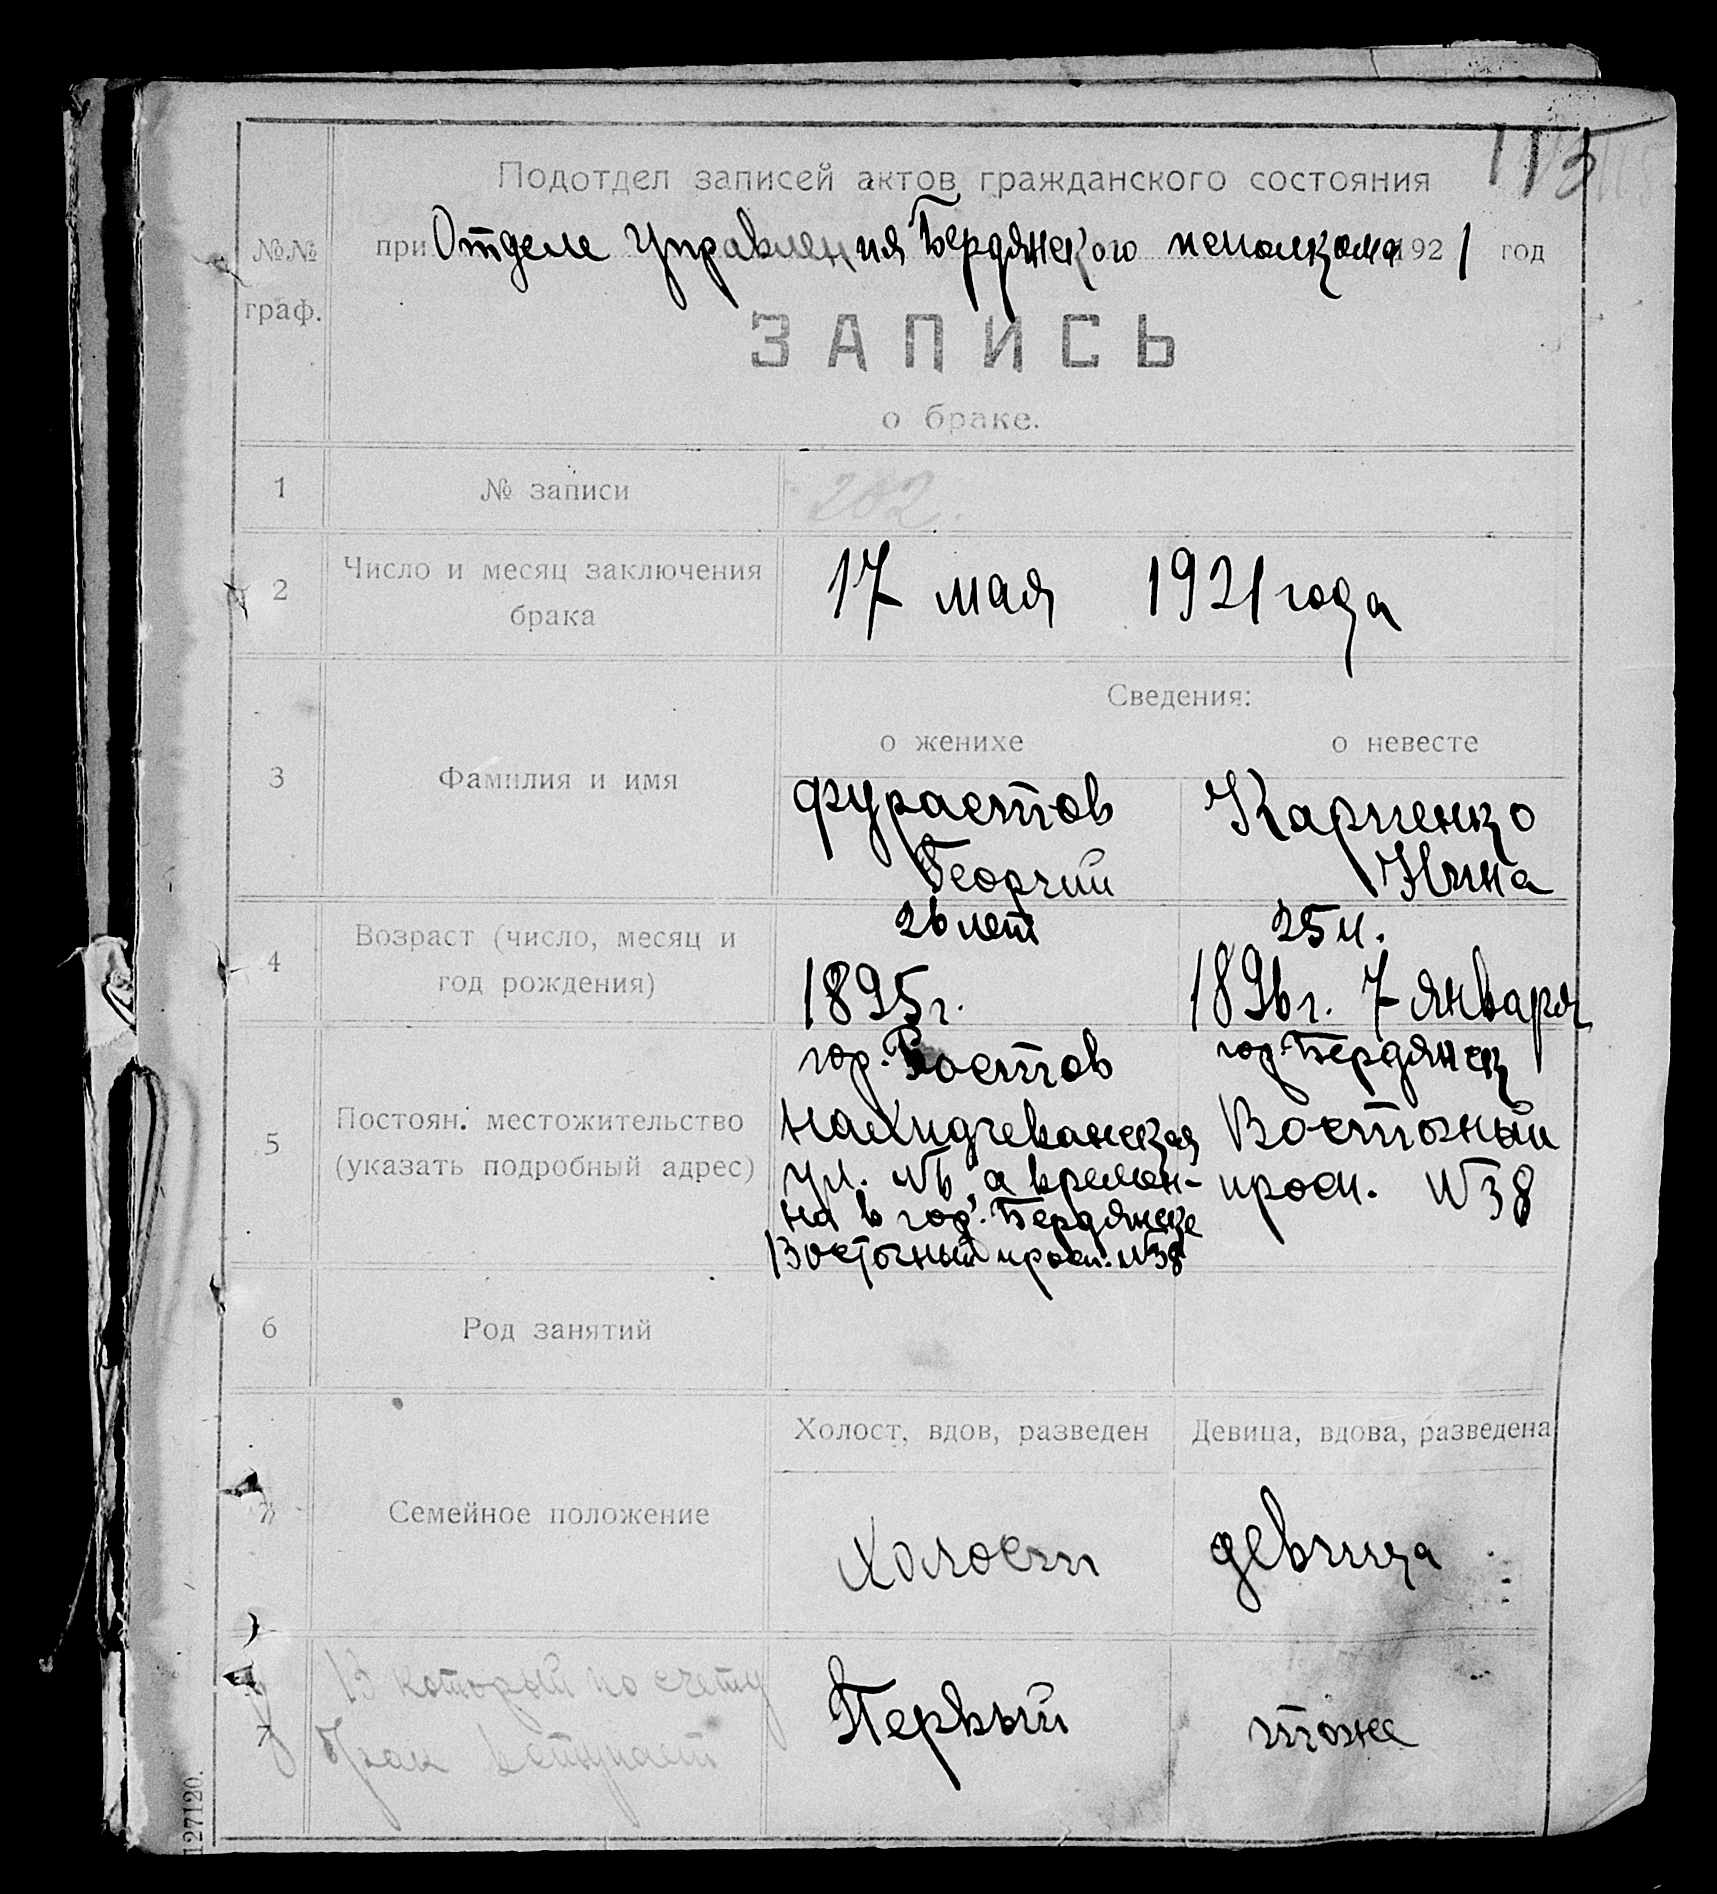 115
Подотдел записей актов гражданского состояния
при Отделе Управления Бердянского исполкома 1921 год
№№
граф.
ЗАПИСЬ
о браке.
1 № записи 202.
2 Число и месяц заключения
брака
17 мая 1921 года
Сведения:
о женихе о невесте
3 Фамилия и имя
Фурастов Карпенко
Георгий Нина
4 Возраст (число, месяц и
год рождения)
26 лет 25 л.
1895 г. 1896 г. 7 января
5 Постоян. местожительство
(указать подробный адрес)
гор. Ростов
Нахидчеванская
ул. №6, а времен-
на в гор. Бердянске
Восточный просп. №38
гор. Бердянск
Восточный
просп. №38
6 Род занятий
Холост, вдов, разведен Девица, вдова, разведена
7 Семейное положение
холост девица
7 В который по счету
брак вступает
Первый тоже
127120.